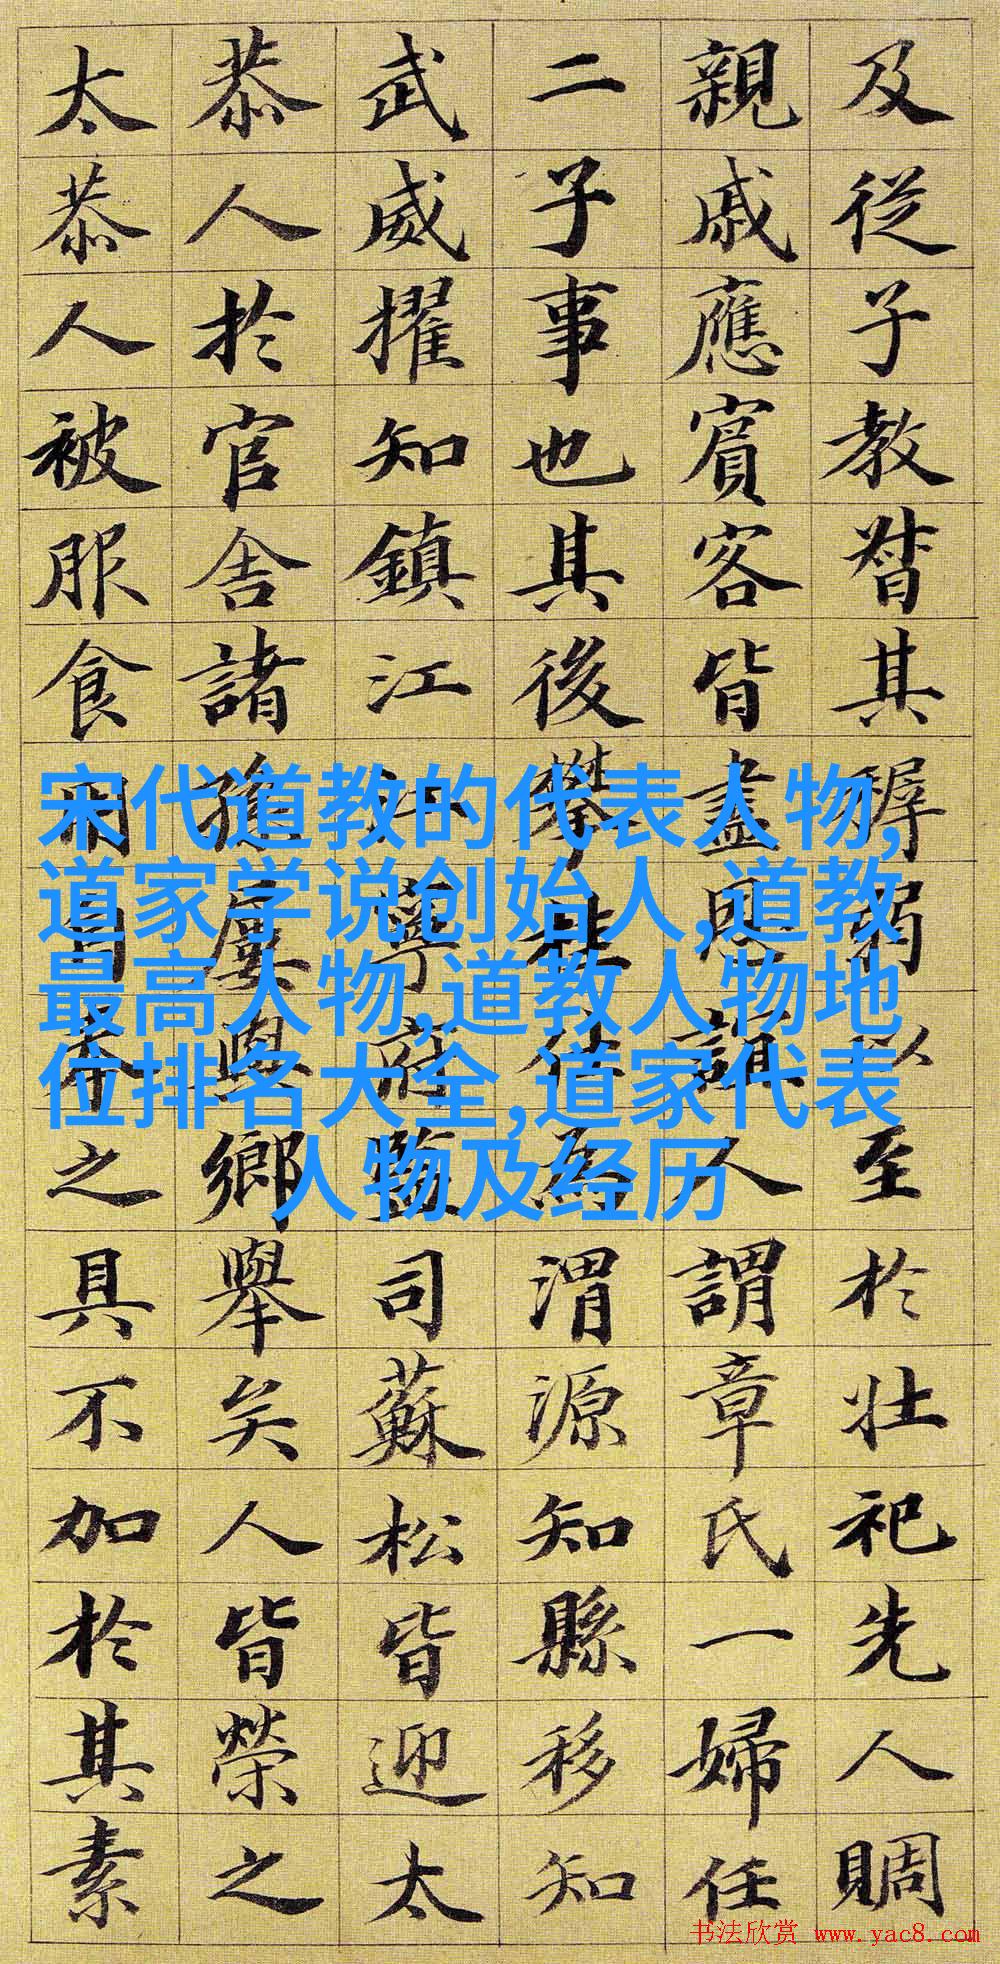 及從子教督其稺弱以至於壯祀先人賙
親戚應賓客皆盡恩誼人謂章氏一婦任
二子事也其後攀桂仕為渭源知縣移知
武威擢知鎮江江寧府監司蘇松皆迎太
恭人於官舍諸孫屢與鄉舉矣人皆榮之
太恭人被服食用自奉之具不加於其素
宋代道教的代表人物,
道家学说创始人,道教
最高人物,道教人物地
位排名大全,道家代表
人物及经历
书法欣赏 www.yac8.com